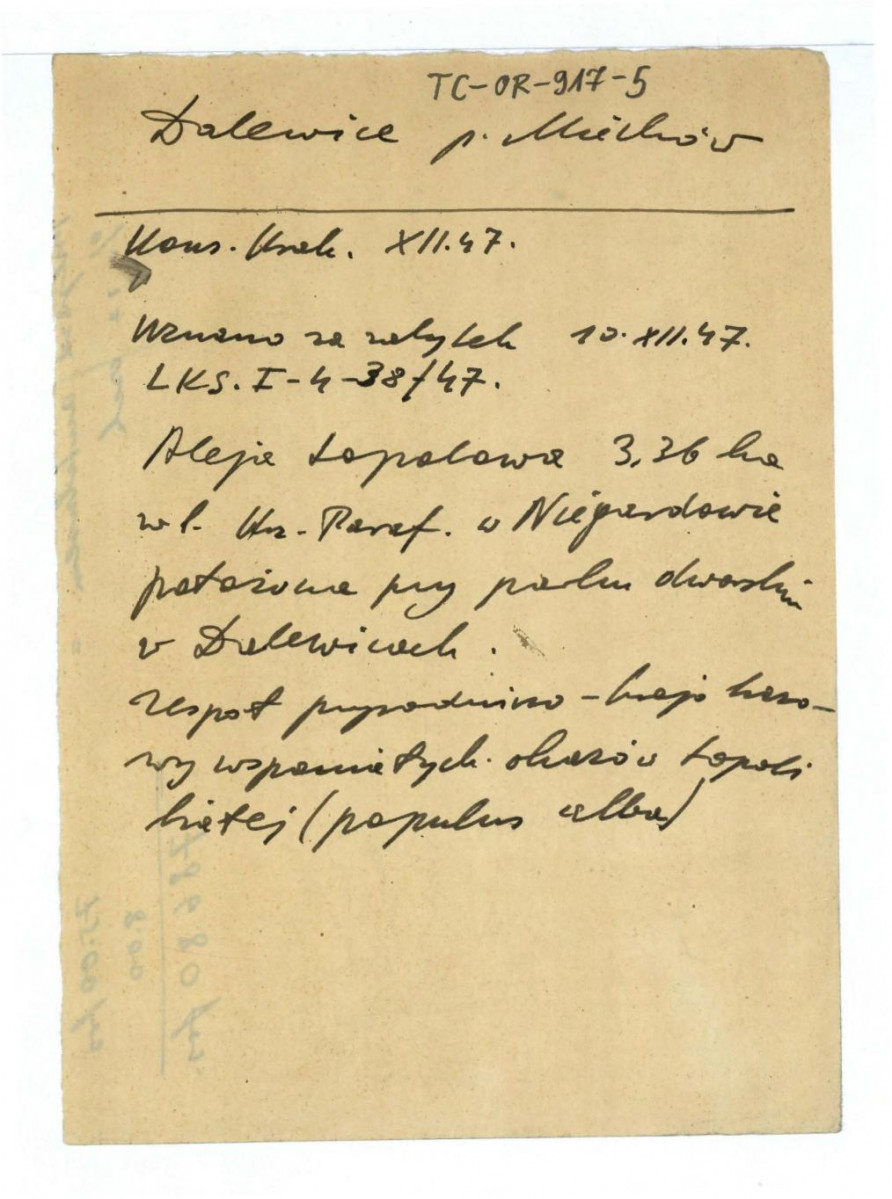 TC-OR-917-5
Dalewice p. Miechów
Kons. Krak. XII.47.
Uznano za zabytek 10.XII.47.
LKS. I-4-38/47.
Aleja topolowa 3,36 ha
wł. Urz. Paraf. w Niegardowie
położona przy parku dworskim
w Dalewicach.
zespół przyrodniczo-krajobrazo-
wy wspaniałych okazów topoli
białej (populus alba)
78980
8.00
75.00